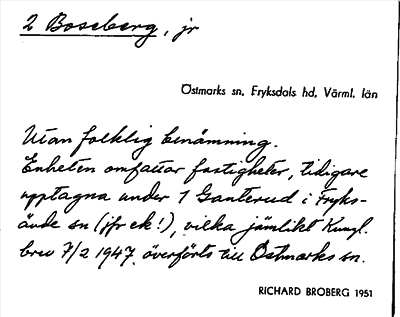 2 Boseberg, jr
Östmarks sn, Fryksdals hd, Värml. län
Utan folklig benämning.
Enheten omfattar fastigheter, tidigare
upptagna under 1 Ganterud i Fryks-
ände sn (jfr ek!), vilka jämlikt Kungl.
brev 7/2 1947 överförts till Östmarks sn.
RICHARD BROBERG 1951